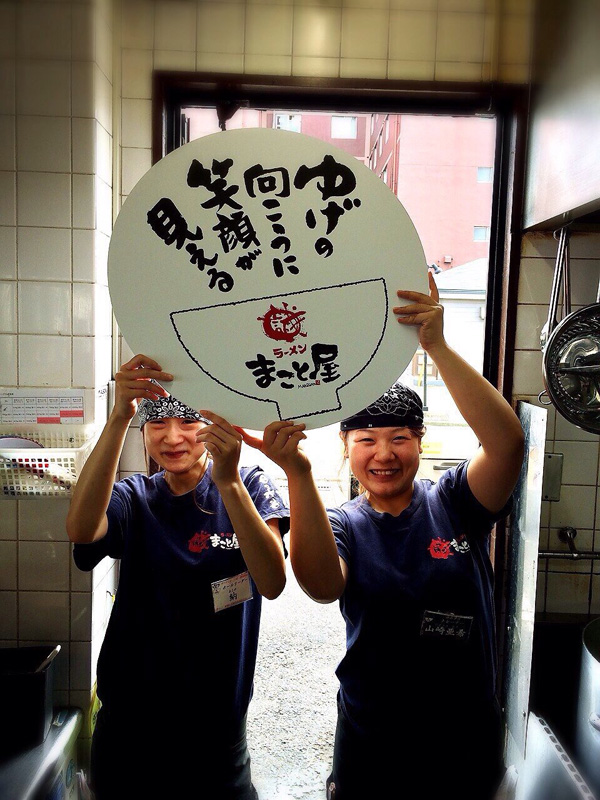 ゆげの
向こうに
笑顔が
見える
ラーメン
まこと屋
まこと屋
まこと屋
山崎亜香